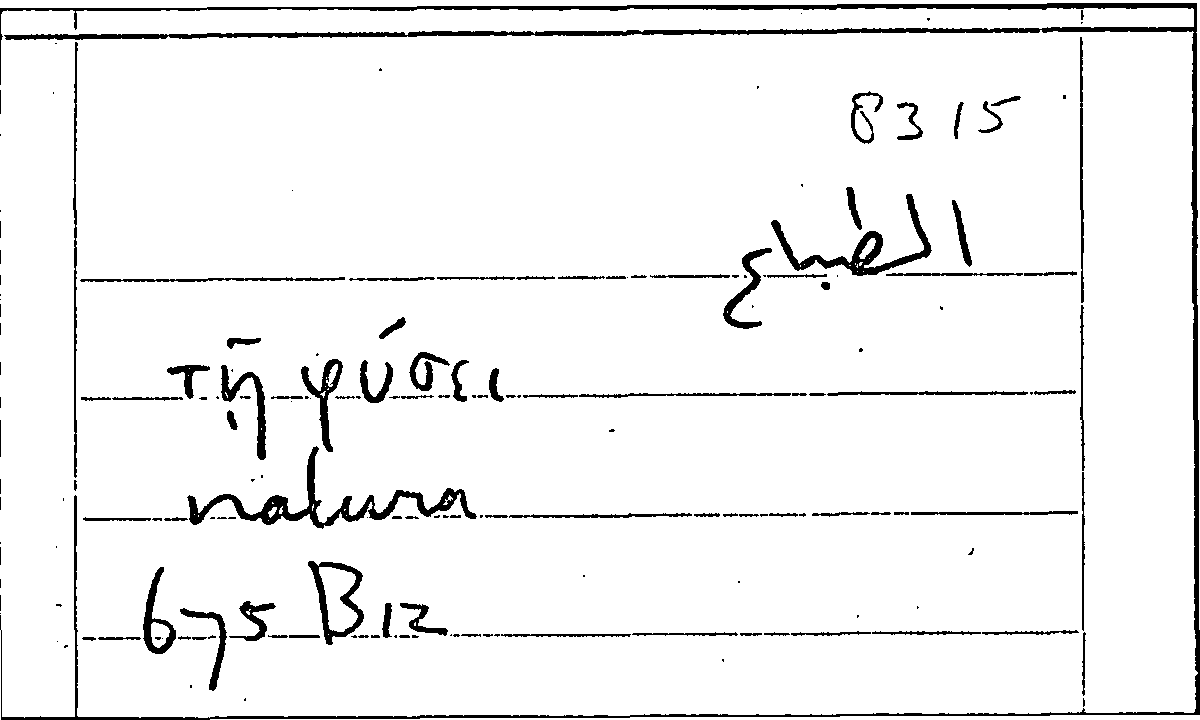 8315
الطباع
τῇ φύσει
natura
675 B12